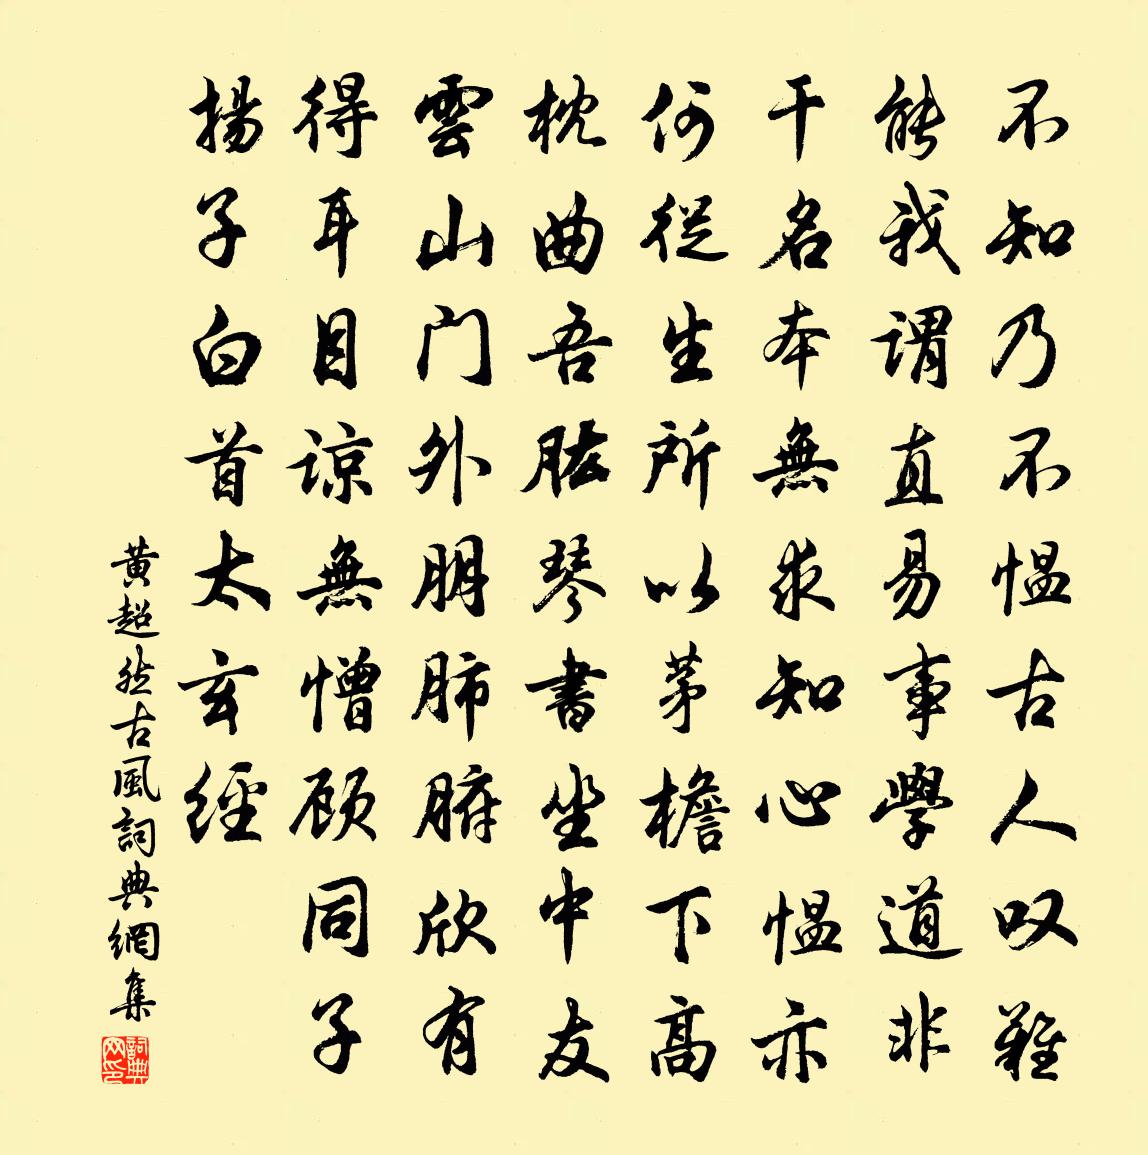 不知乃不愠古人叹難
能我謂直易事學道非
干名本無求知心愠亦
何從生所以茅檐下高
枕曲吾肱琴書坐中友
雲山门外朋肺腑欣有
得耳目谅無憎顾同子
揚子白首太玄經
黄超然古風詞典網集
詞典网印